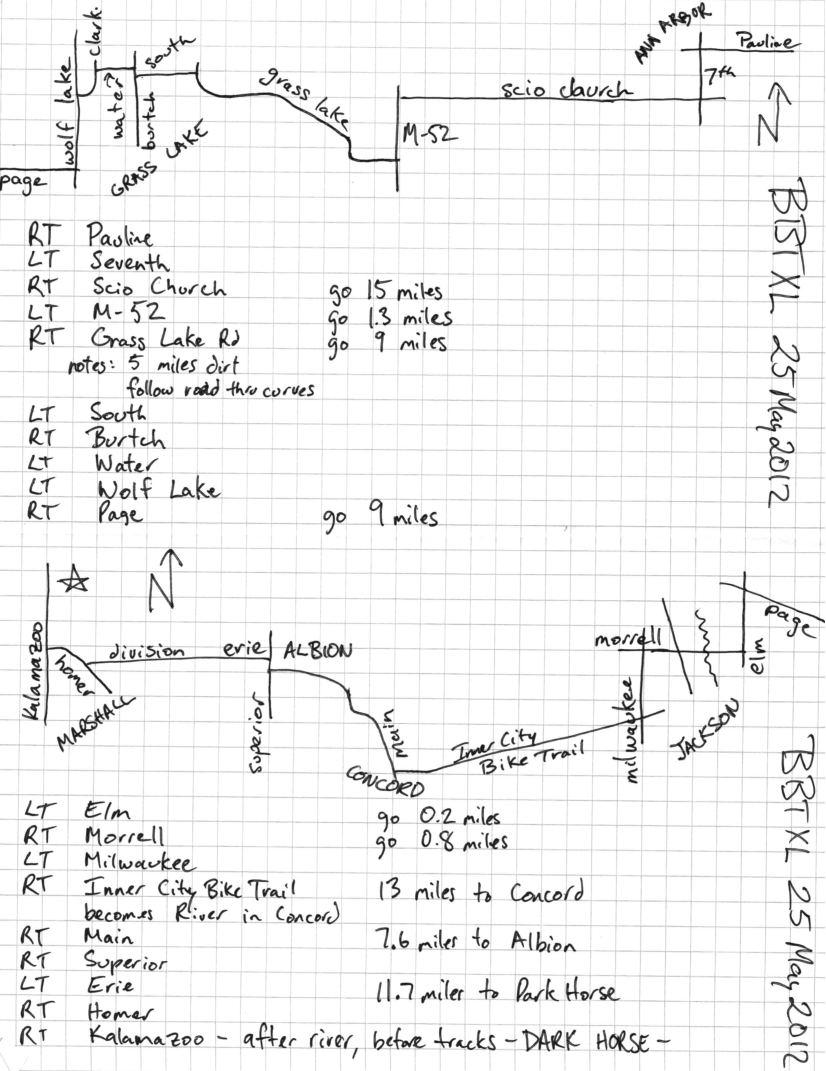 ANN ARBOR
Pauline
7th
scio church
M-52
grass lake
south
clark
water
burtch
GRASS LAKE
wolf lake
page
N
BBTXL 25 May 2012
RT Pauline
LT Seventh
RT Scio Church go 15 miles
LT M-52 go 1.3 miles
RT Grass Lake Rd go 9 miles
notes: 5 miles dirt
follow road thru curves
LT South
RT Burtch
LT Water
LT Wolf Lake
RT Page go 9 miles
N
Kalamazoo
homer
MARSHALL
division
erie
ALBION
superior
Main
CONCORD
Inner City
Bike Trail
milwaukee
morrell
JACKSON
elm
page
BBTXL 25 May 2012
LT Elm go 0.2 miles
RT Morrell go 0.8 miles
LT Milwaukee
RT Inner City Bike Trail 13 miles to Concord
becomes River in Concord
RT Main 7.6 miles to Albion
RT Superior
LT Erie 11.7 miles to Dark Horse
RT Homer
RT Kalamazoo - after river, before tracks - DARK HORSE -